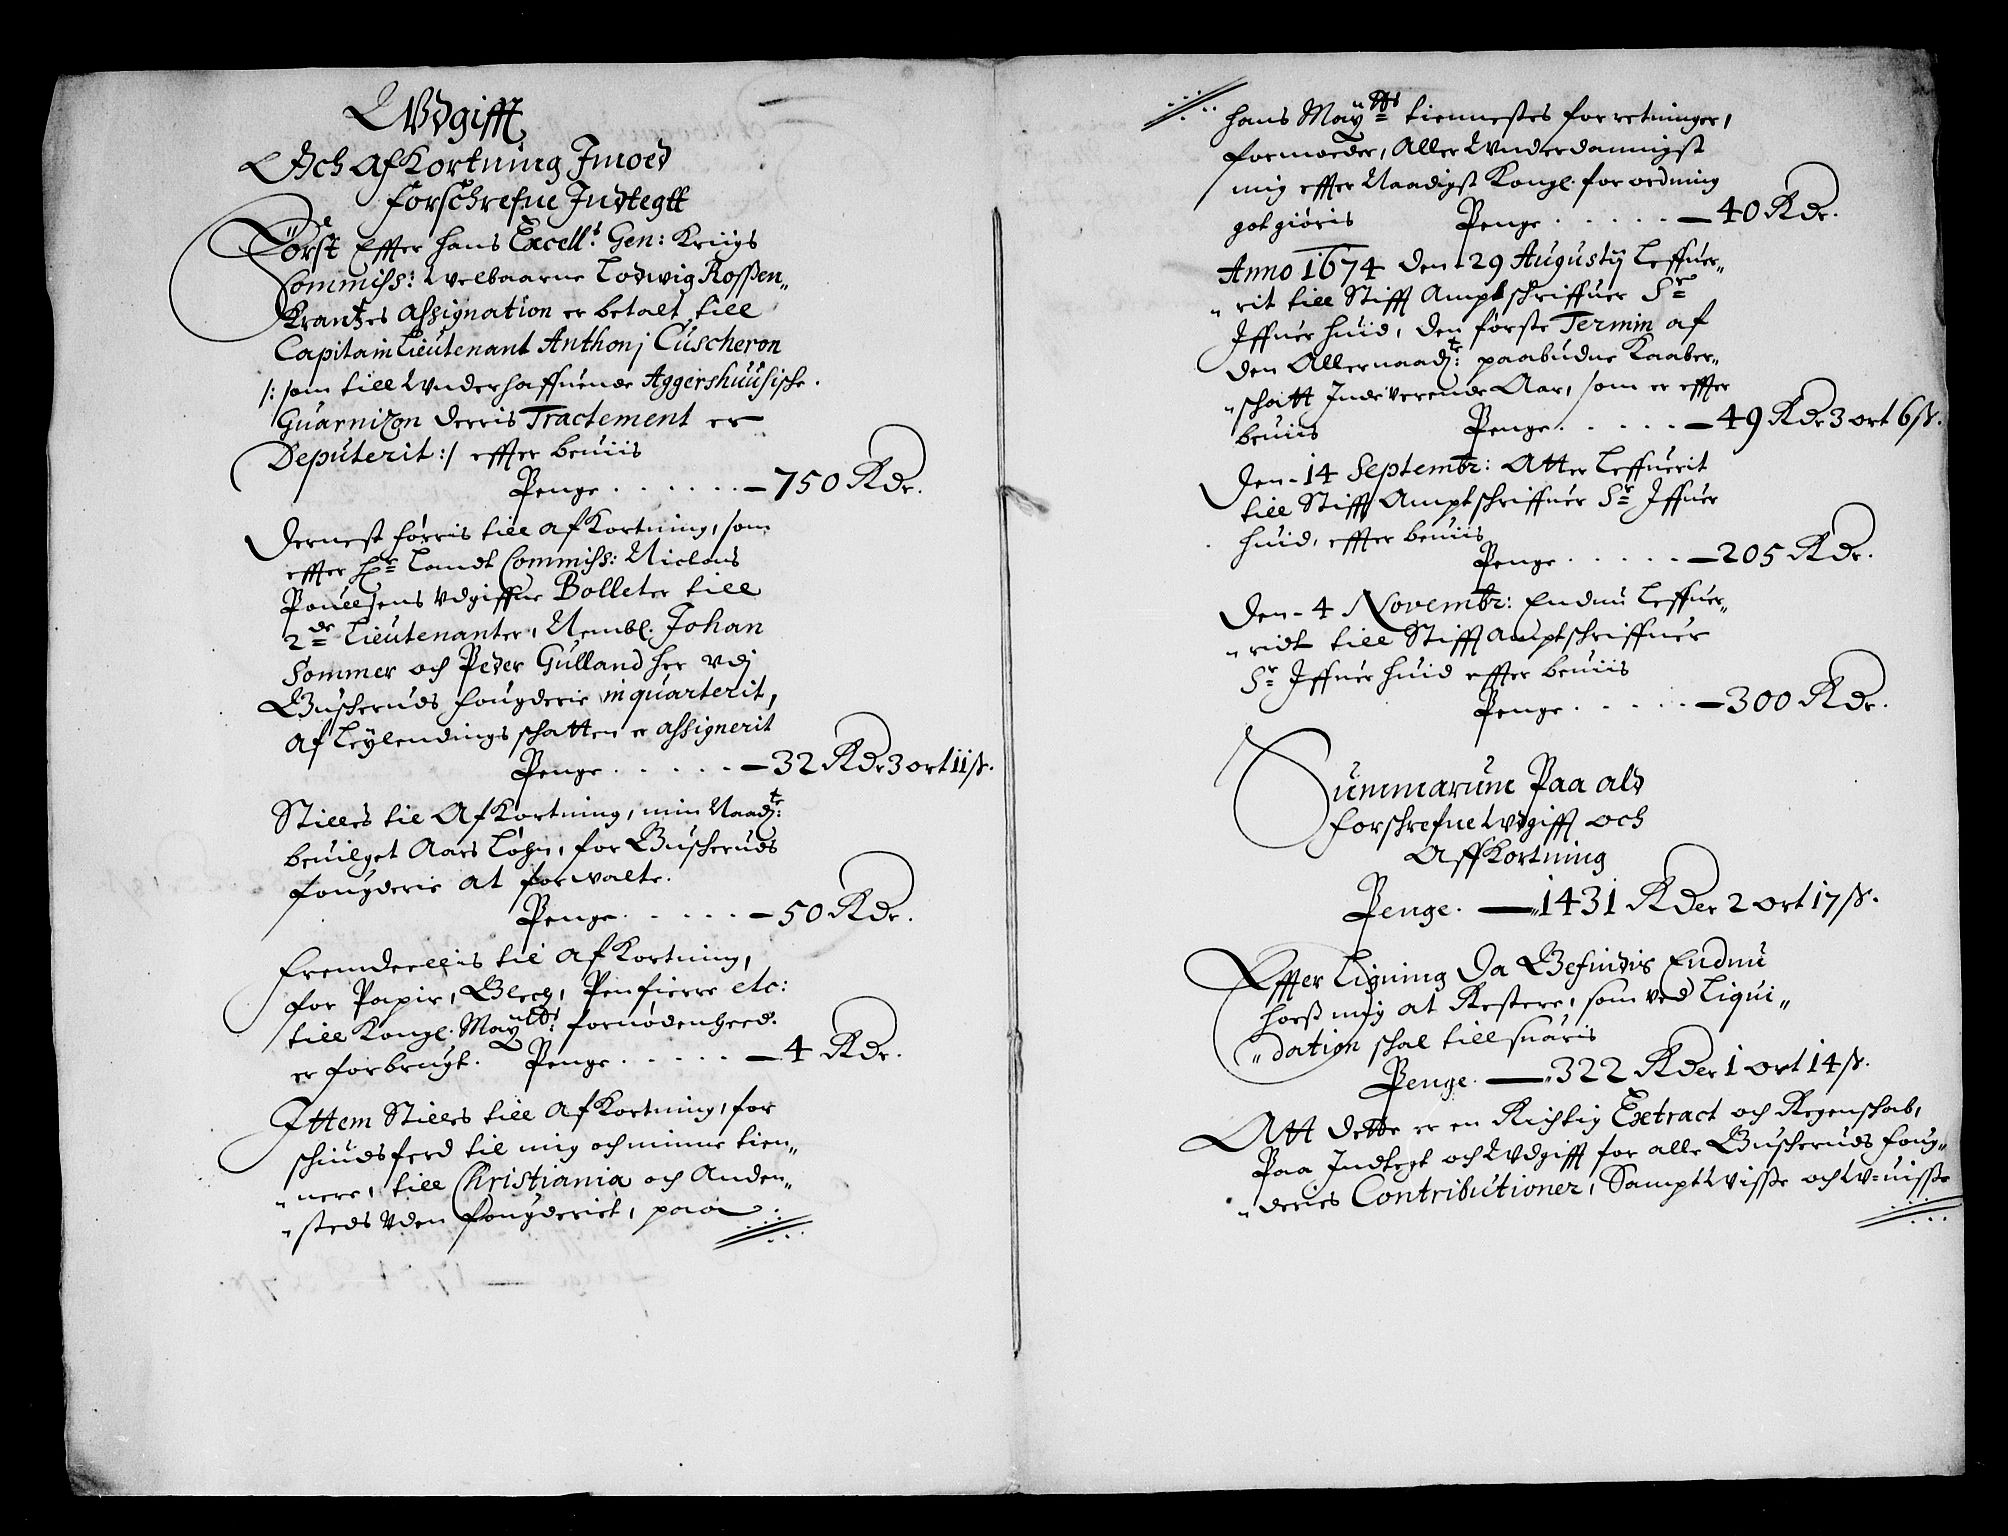 Wdgifft
Och AfKortning Jmoed
forschrefne Jndtegtt
Først Effter hans Excell:s Gen: Kriigs
Commiss: Welbaarne Lodwig Rossen„
Krantzes Assignation er betalt till
Capitain Lieutenant Anthonj Cuscheron
/: som till Wnderhaffuende Aggershuusische.
Guarnizon derris Tractement er
Deputerit :/ effter beuiis
Penge . . . . . . — 750 Rdr.
Dernest førris till afKortning, som
effter Hr Landt Commiss: Niclaus
Pouelsens Vdgiffne Bolleter till
2de Lieutenanter, Nembl. Johan
Sommer och Peder Gulland her vdj
Buscheruds fougderie inquarterit,
Af Leylendings schatten er assignerit
Penge . . . . . — 32 Rdr 3 ort 11 ß.
Stilles til AfKortning, min Naadte:
beuilget Aars Løhn, for Buscheruds
fougderie at forwalte.
Penge . . . . . — 50 Rdr.
Fremdeellis til AfKortning,
for Papir, Blech, Penfierre etc:
till Kongl: Mayttz: fornødenheed.
er forbrugt. Penge . . . . . — 4 Rdr.
Jttem Stilles till AfKortning, for
schiudsferd til mig och minne tien„
„nere, till Christiania och Anden„
„steds Vden fougderiet, paa
hans Mayttz tiennestes forretninger,
formoeder, Aller Wnderdannigst
mig effter Naadigst Kongl. forordning
gotgiøris Penge . . . . . — 40 Rdr.
Anno 1674 den 29 Augustij Leffuer„
„rit till Stifft Amptschriffuer Sr
Jffuer huid, den første Termin af
den Allernaadte: paabudne Kaaber„
„schatt Indeverende Aar, som er effter
beuiis Penge . . . . . — 49 Rdr 3 ort 6 ß.
Den 14 Septembr: Atter Leffuerit
till Stifft Amptschriffuer Sr Jffuer
huid, effter beuiis
Penge . . . . . — 205 Rdr.
Den 4 Novembr: Endnu Leffuer„
„ridt till Stifft Amptschriffuer
Sr Jffuer huid effter beuiis
Penge . . . . . — 300 Rdr.
Summarum Paa ald
forschrefne Wdgifft och
AffKortning
Penge. — 1431 Rder 2 ort 17 ß.
Effter Ligning Da Befindis Endnu
hoeß mig at Restere, som ved Liqui„
„dation schal till suaris
Penge. — 322 Rder 1 ort 14 ß.
Att dette er en Richtig Extract och Regenschab,
Paa Jndtegt och Wdgifft for alle Buscheruds foug„
„deries Contributioner, Sampt Wisse och W=uisse